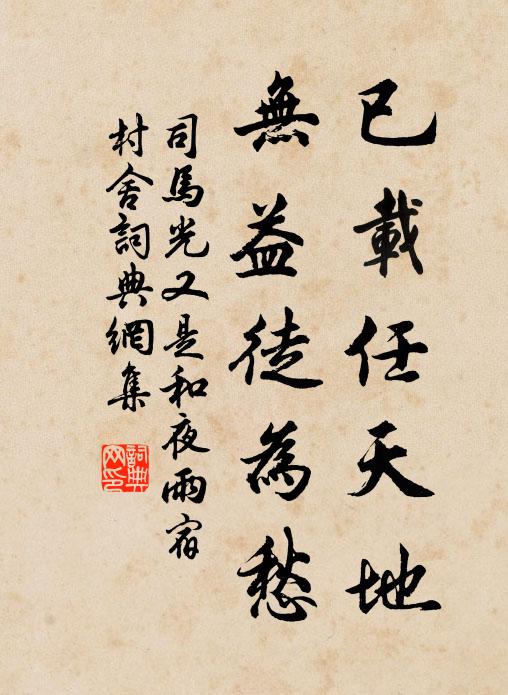 已載任天地
無益徒為愁
司馬光又是和夜雨宿
村舍詞典網集
詞典网印